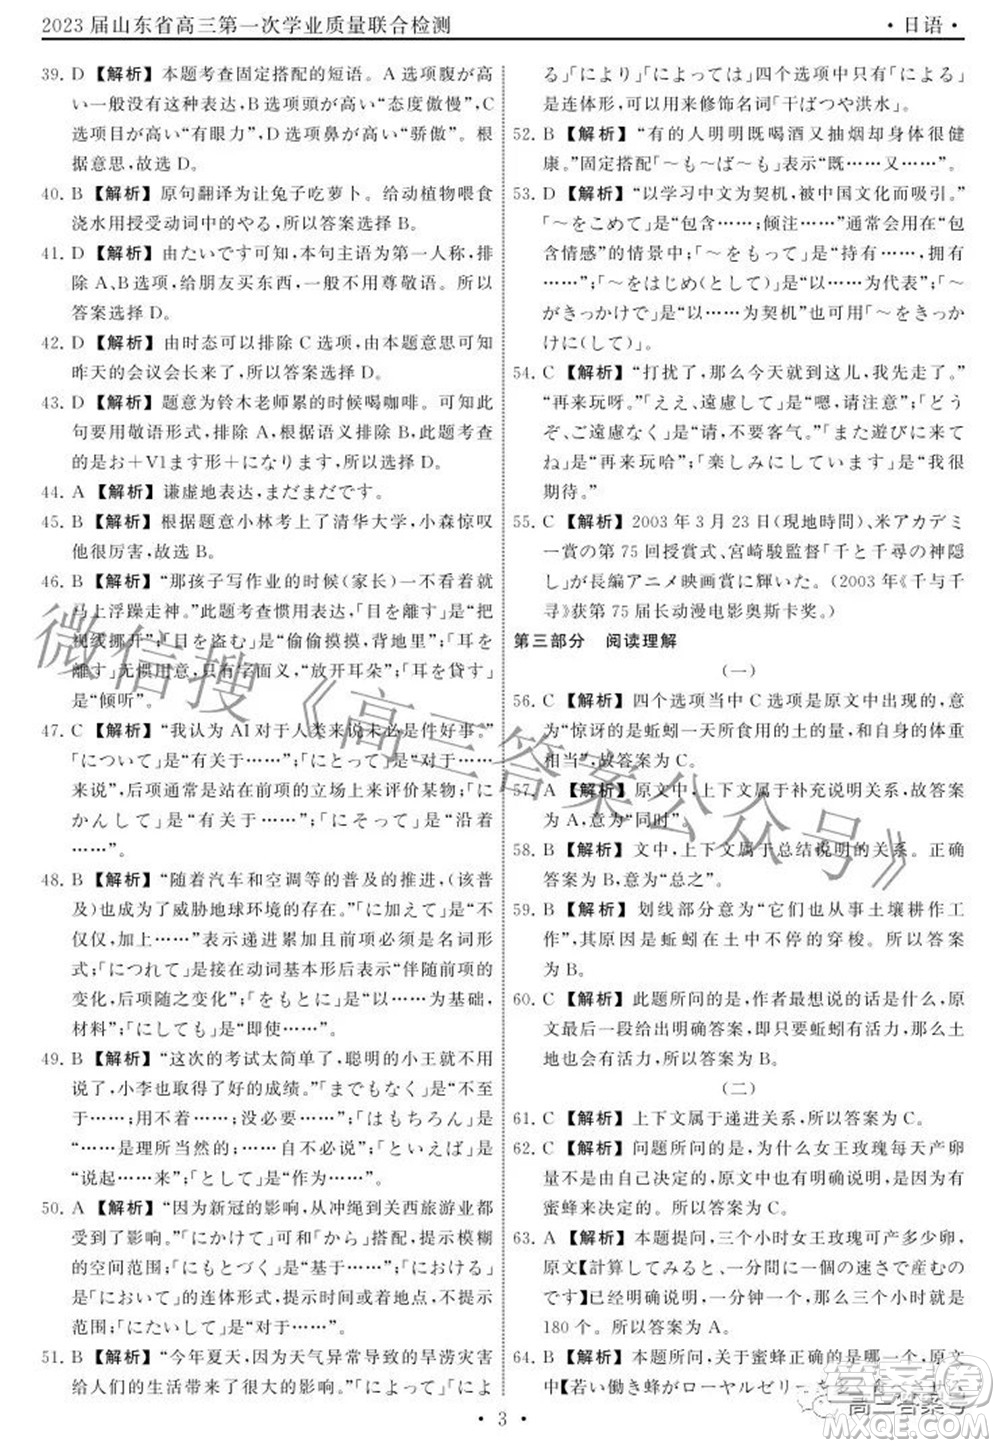 2023 届山东省高三第一次学业质量联合检测
·日语·
39. D 【解析】本题考查固定搭配的短语。A 选项腹が高
い一般没有这种表达，B 选项頭が高い“态度傲慢”，C
选项目が高い“有眼力”，D 选项鼻が高い“骄傲”。根
据意思，故选 D。
40. B 【解析】原句翻译为让兔子吃萝卜。给动植物喂食
浇水用授受动词中的やる，所以答案选择 B。
41. D 【解析】由たいです可知，本句主语为第一人称，排
除 A、B 选项，给朋友买东西，一般不用尊敬语。所以
答案选择 D。
42. D 【解析】由时态可以排除 C 选项，由本题意思可知
昨天的会议会长来了，所以答案选择 D。
43. D 【解析】题意为铃木老师累的时候喝咖啡。可知此
句要用敬语形式，排除 A，根据语义排除 B，此题考查
的是お＋V1ます形＋になる，所以答案选择 D。
44. A 【解析】谦虚地表达，まだまだです。
45. B 【解析】根据题意小林考上了清华大学，小森惊叹
他很厉害，故选 B。
46. B 【解析】“那孩子写作业的时候（家长）一不看着就
马上浮躁走神。”此题考查惯用表达，「目を離す」是“把
视线挪开”；「目を盗む」是“偷偷摸摸，背地里”；「耳を
離す」无惯用意，只有字面义，“放开耳朵”；「耳を貸す」
是“倾听”。
47. C 【解析】“我认为 AI 对于人类来说未必是件好事。”
「について」是“关于……”；「にとって」是“对于……
来说”，后项通常是站在前项的立场上来评价某物；「に
かんして」是“有关于……”；「にそって」是“沿着
……”。
48. B 【解析】“随着汽车和空调等的普及的推进，（该普
及）也成为了威胁地球环境的存在。”「に加えて」是“不
仅仅，加上……”表示递进累加且前项必须是名词形
式；「につれて」是接在动词基本形后表示“伴随前项的
变化，后项随之变化”；「をもとに」是“以……为基础，
材料”；「にしても」是“即使……”。
49. B 【解析】“这次的考试太简单了，聪明的小王就不用
说了，小李也取得了很好的成绩。”「までもなく」是“不至
于……；用不着……；没必要……”；「はもちろん」是
“……是理所当然的；……自不必说”；「といえば」是
“说起……来”；「として」是“作为……”。
50. A 【解析】“因为新冠的影响，从冲绳到关西旅游业都
受到了影响。”「にかけて」可和「から」搭配，提示模糊
的空间范围；「にもとづく」是“基于……”；「における」
是「において」的连体形式，提示时间或者地点，不提示
范围；「にたいして」是“对于……”。
51. B 【解析】“今年夏天，因为天气异常导致的旱涝灾害
给人们的生活带来了很大的影响。”「によ
る」「により」「によっては」四个选项中只有「による」
是连体形，可以用来修饰名词「干ばつや洪水」。
52. B 【解析】“有的人明明既喝酒又抽烟却身体很健
康。”固定搭配「～も～ば～も」表示“既……又……”。
53. D 【解析】“以学习中文为契机，被中国文化而吸引。”
「～をこめて」是“包含……；倾注……”通常会用在“包
含情感”的情景中；「～をもって」是“持有……；拥有
……”；「～をはじめ（として）」是“以……为代表”；「～
がきっかけで」是“以……为契机”而「～をきっか
けに（して）」。
54. C 【解析】“打扰了，那么今天就到这儿，我告辞了。”
“再来玩呀。”「ええ、遠慮して」是“嗯，请注意”；「どう
ぞ、ご遠慮なく」是“请，不要客气。”「また遊びに来て
ね」是“再来玩哈”；「楽しみにしています」是“我很
期待。”
55. C 【解析】2003 年 3 月 23 日（現地時間）、米アカデミ
ー賞の第 75 回授賞式、宮崎駿監督「千と千尋の神隠
し」が長編アニメ映画賞に輝いた。（2003 年《千与千
寻》获第 75 届长动漫电影奥斯卡奖。）
第三部分 阅读理解
（一）
56. C 【解析】四个选项当中 C 选项是原文中出现的，意
为“惊讶的是蚯蚓一天所食用的土的量和自身的体重
相当”，故答案为 C。
57. A 【解析】原文中，上下文属于补充说明，故答案
为 A，意为“同时”。
58. B 【解析】文中，上下文属于总结说明的关系。正确
答案为 B，意为“总之”。
59. B 【解析】划线部分意为“它们也从事土壤耕作工
作”，其原因是蚯蚓在土中不停的穿梭。所以答案
为 B。
60. C 【解析】此题所问的是，作者最想说的话是什么，原
文最后一段给出明确答案，说只要蚯蚓有活力，那么土
地也会有活力，所以答案为 B。
（二）
61. C 【解析】上下文属于递进关系，所以答案为 C。
62. C 【解析】问题所问的是，为什么女王玫瑰每天产卵
量不是由自己来决定的，原文中给出明确答案，是有由
蜜蜂来决定的。所以答案为 C。
63. A 【解析】本题提问，三个小时女王玫瑰可产多少卵，
原文【計算してみると、一分間に一つの速さで産むので
す】已经明确说明，一分钟产出一个，所以三小时是
180 个。所以答案为 A。
64. B 【解析】本题所问，关于蜜蜂正确的是哪一个，原文
中【若い働き蜂がローヤルゼリーを
· 3 ·
微信搜《高三答案公众号》
高三答案号
答案圈
MXQE.COM